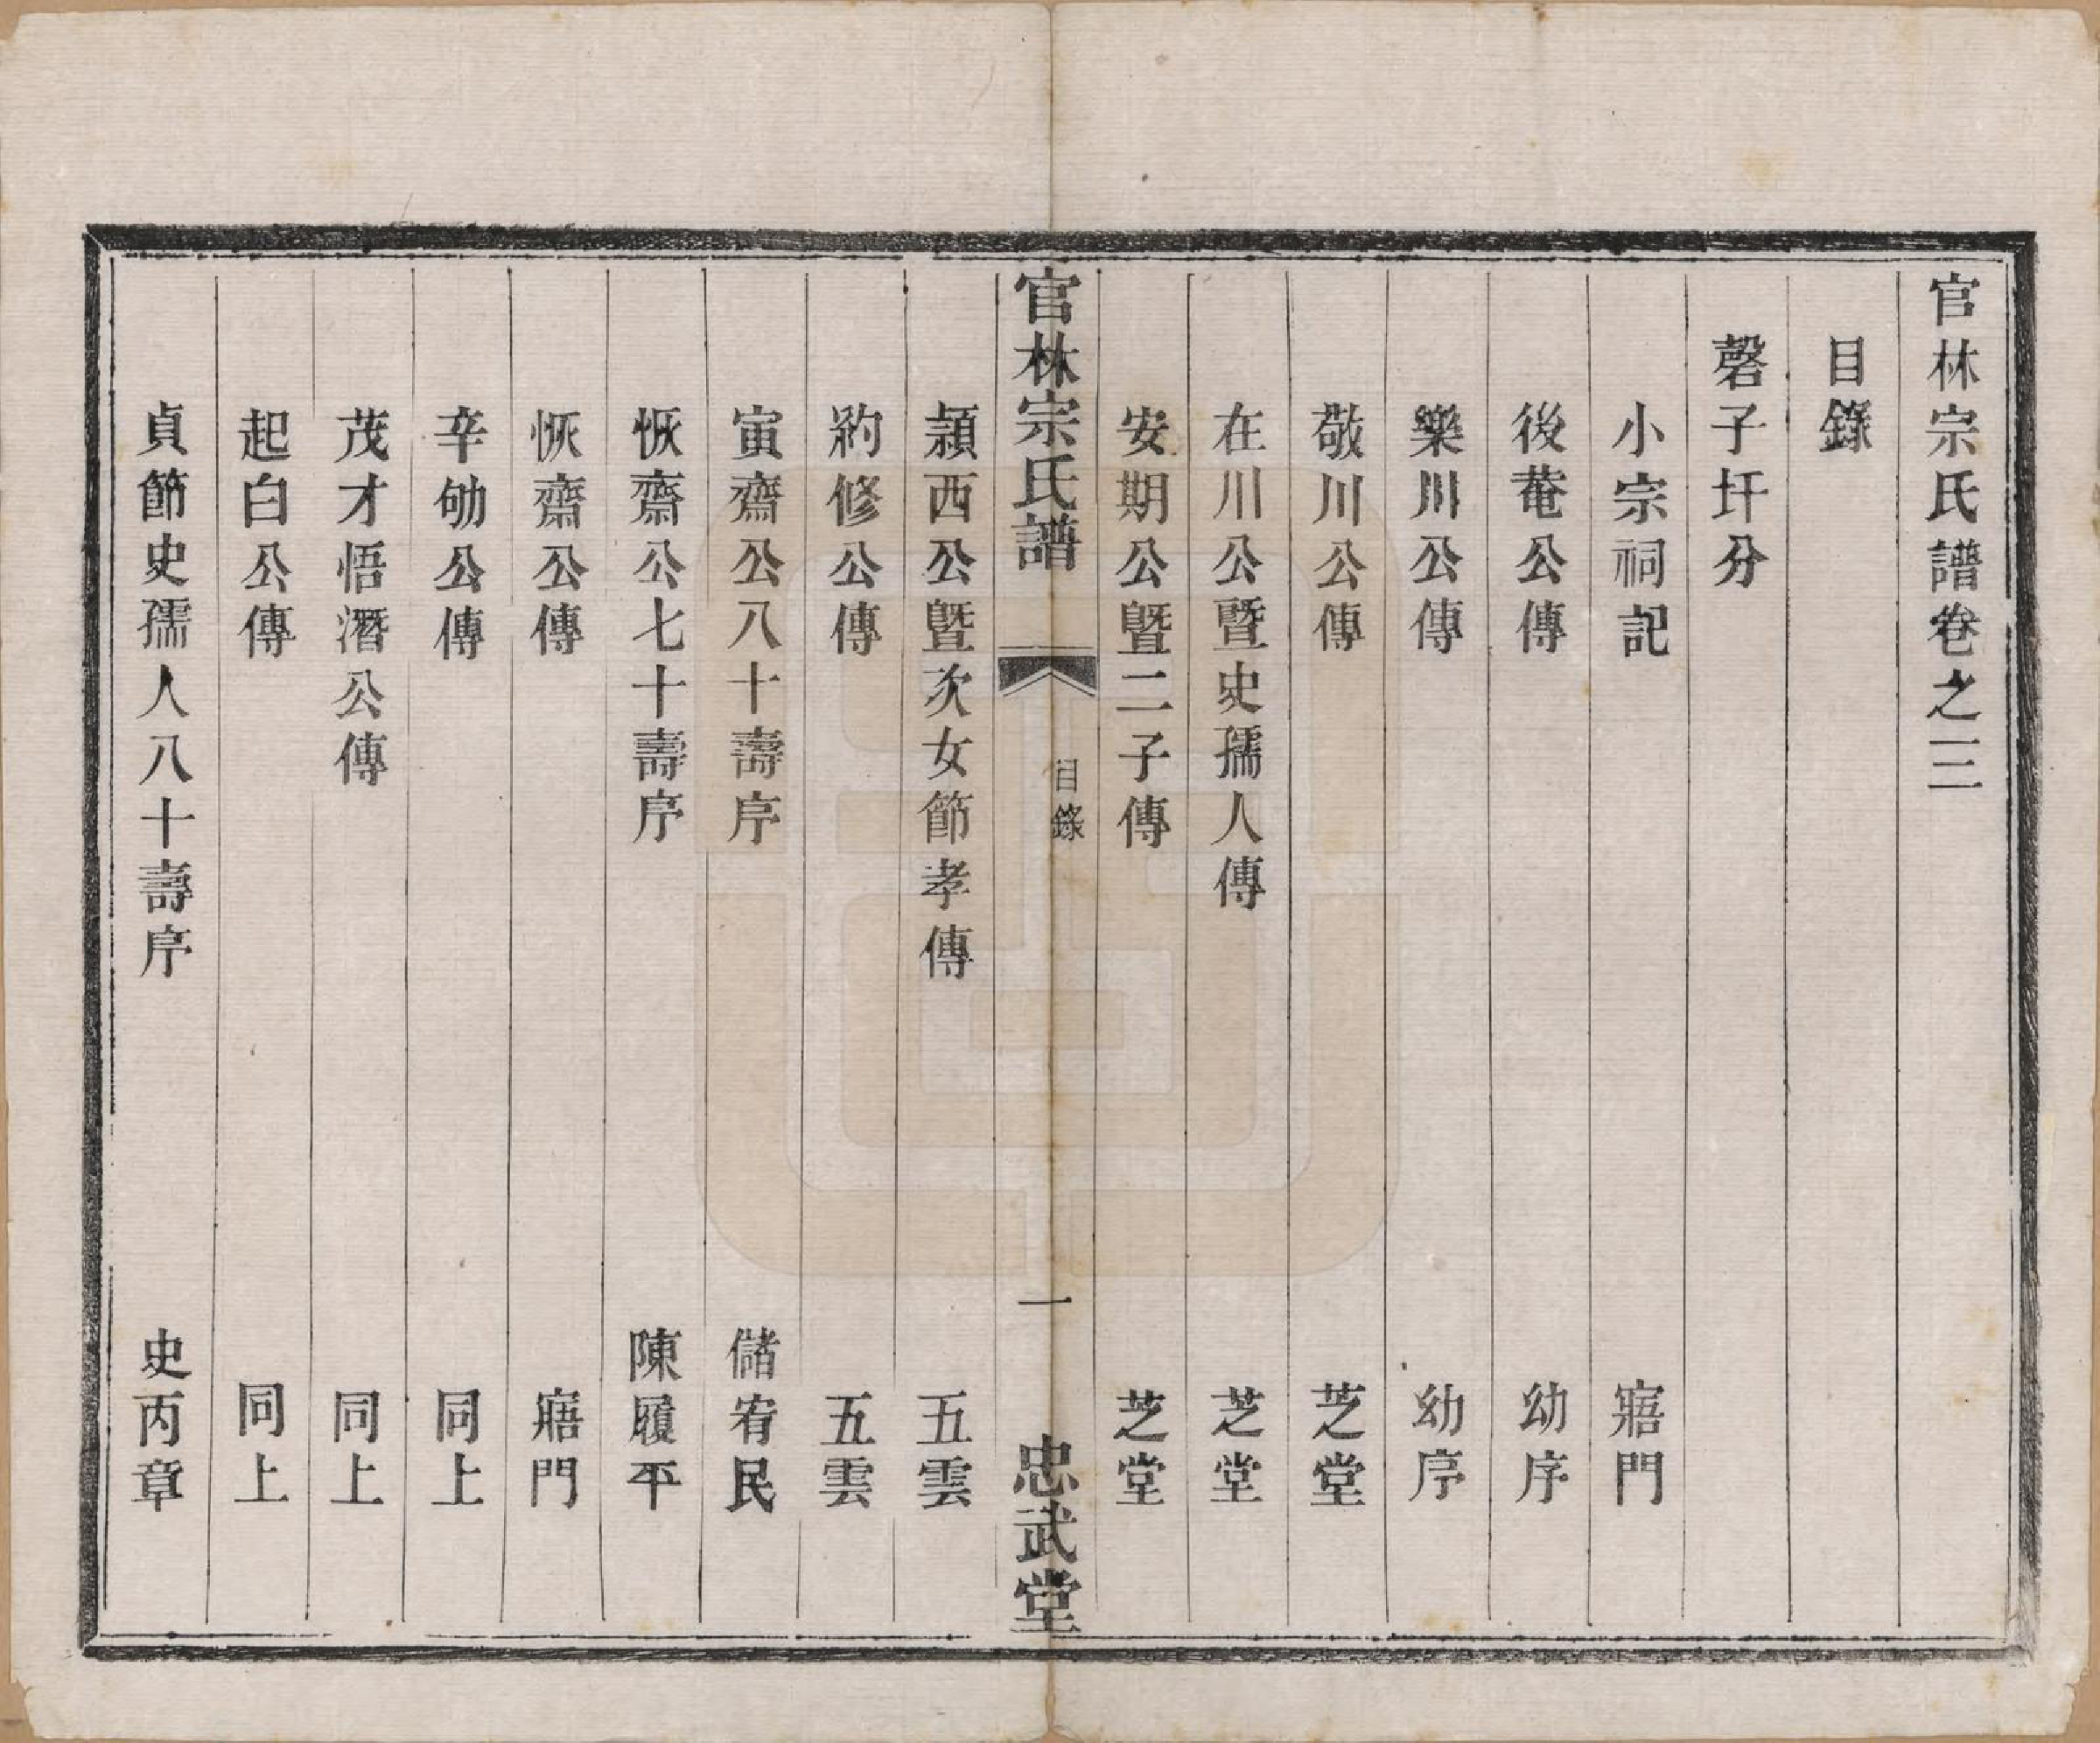 官林宗氏譜卷之三
目錄
磬子圩分
小宗祠記 寤門
後菴公傳 幼序
樂川公傳 幼序
敬川公傳 芝堂
在川公暨史孺人傳 芝堂
安期公暨二子傳 芝堂
官林宗氏譜 目錄 一 忠武堂
潁西公暨次女節孝傳 五雲
約修公傳 五雲
寅齋公八十壽序 儲宥民
恢齋公七十壽序 陳履平
恢齋公傳 寤門
辛劬公傳 同上
茂才悟潛公傳 同上
起白公傳 同上
貞節史孺人八十壽序 史丙章